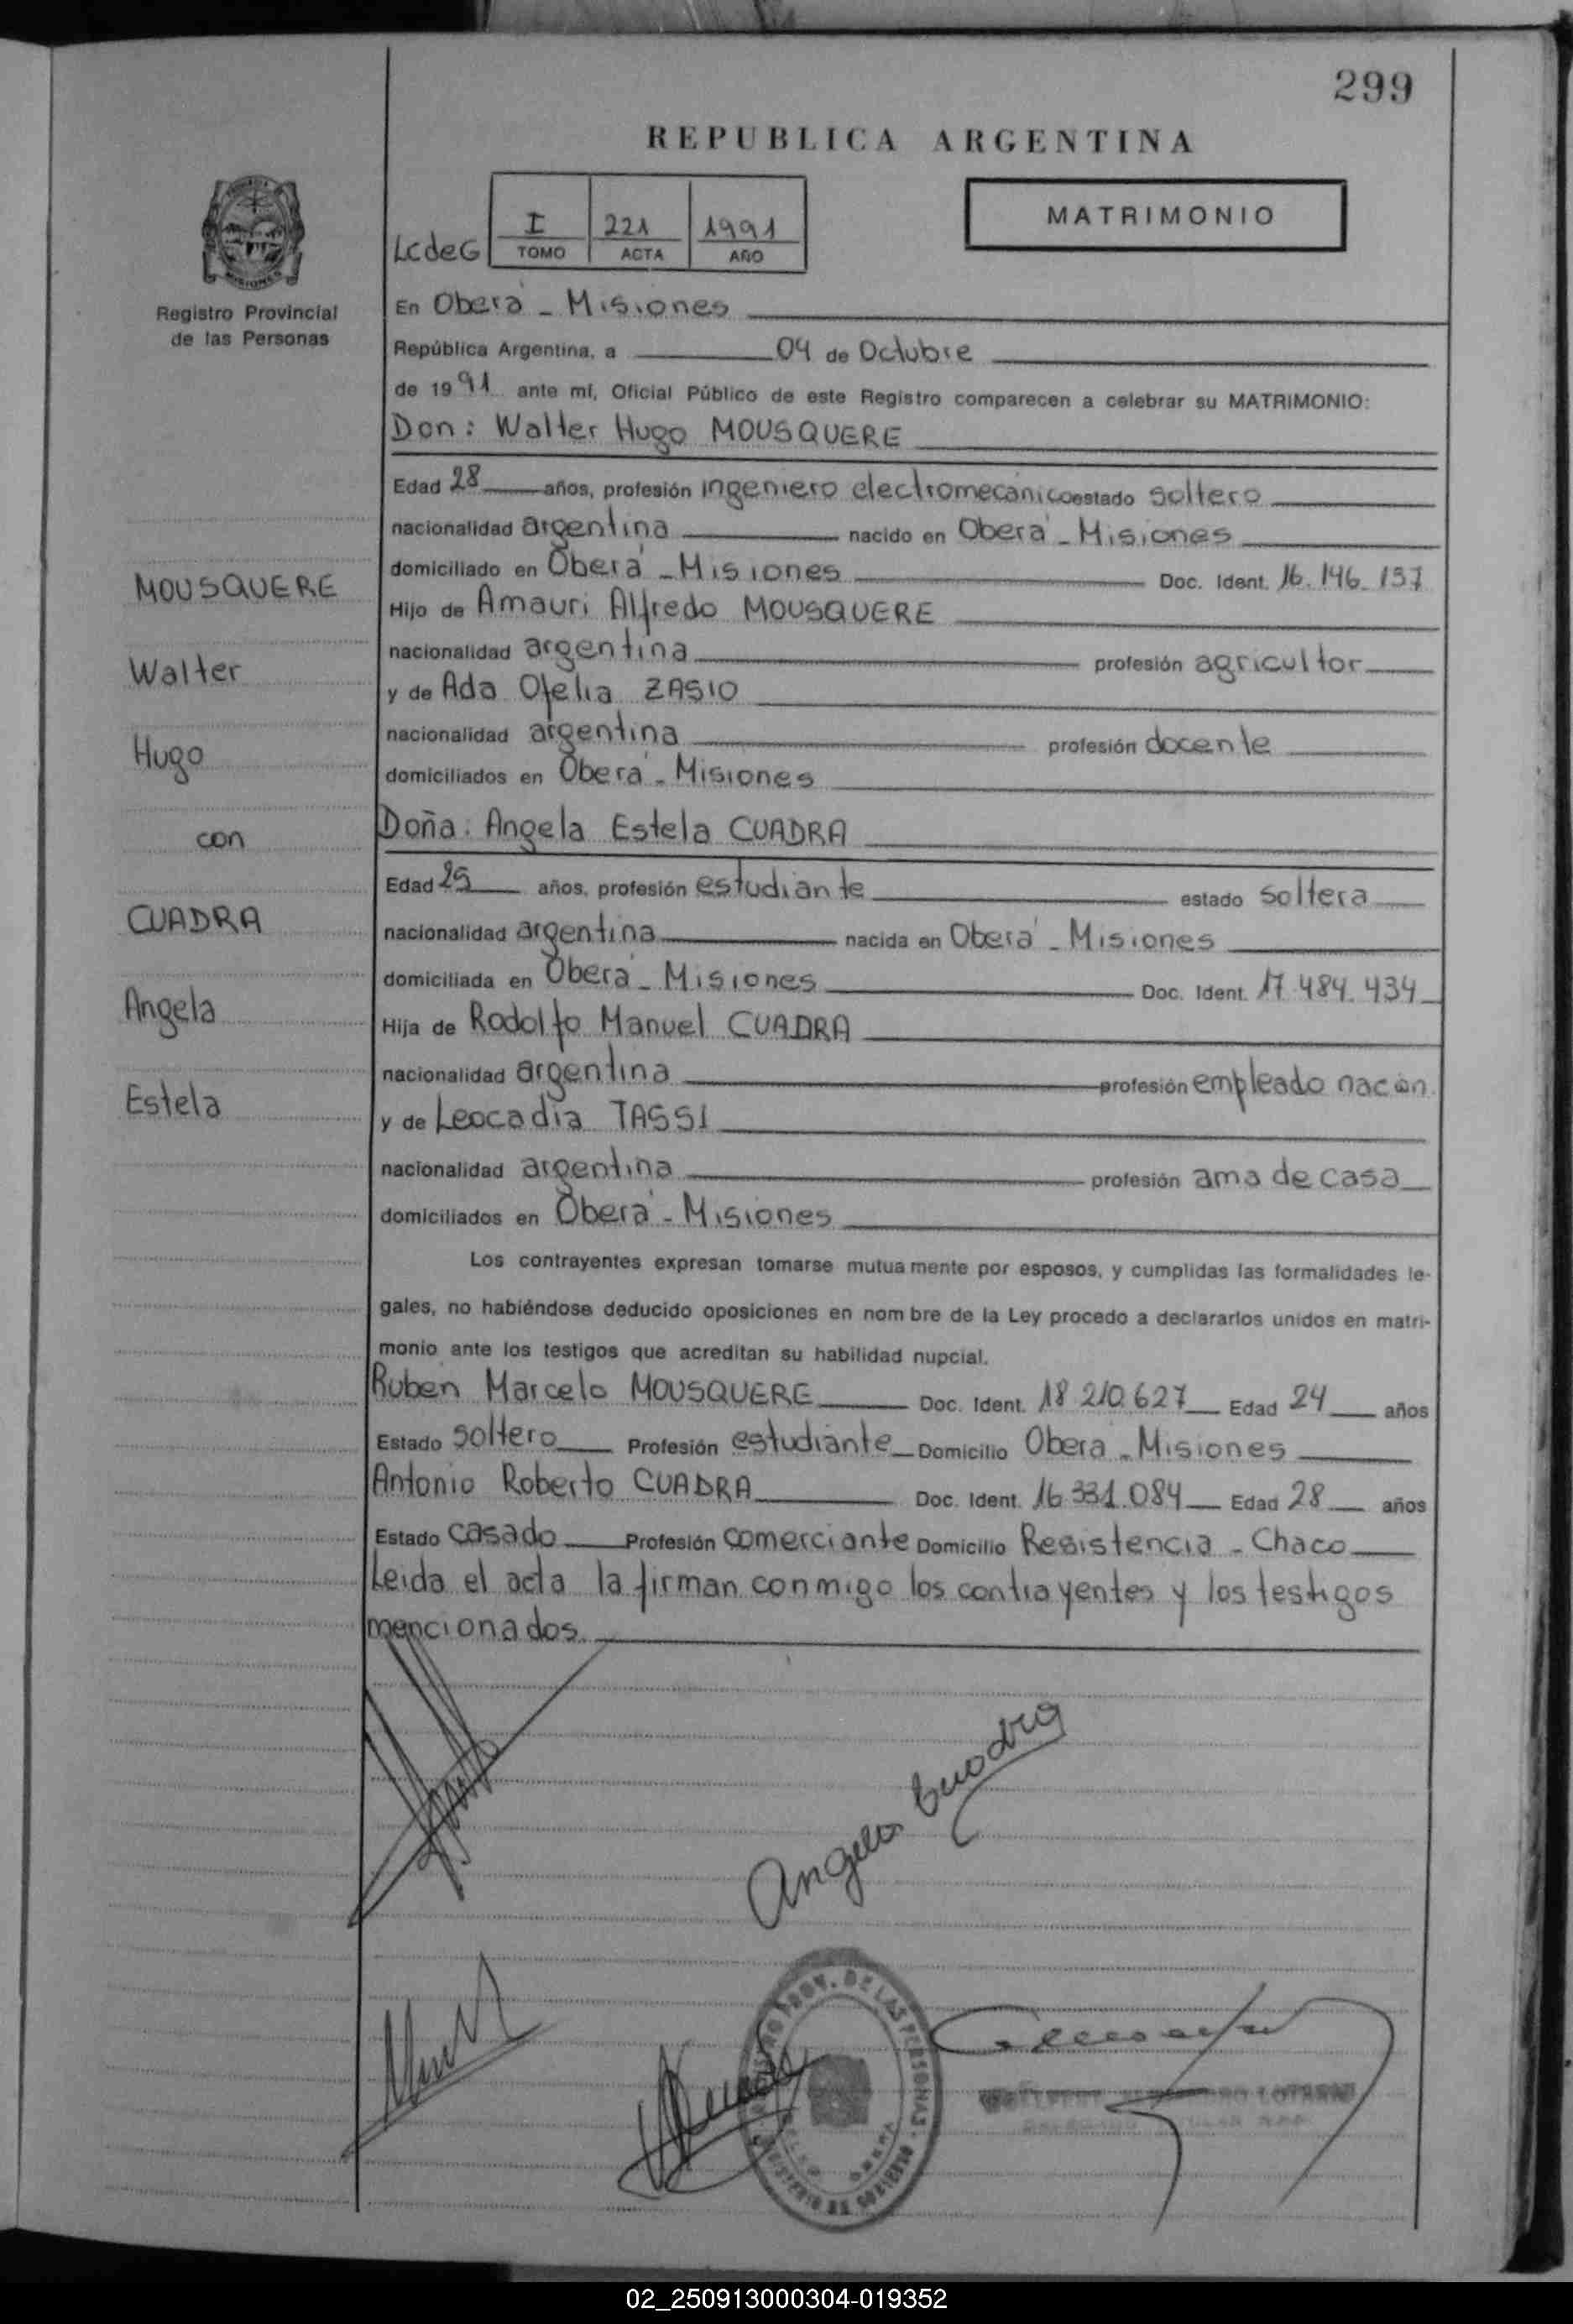 299
REPUBLICA ARGENTINA
MATRIMONIO
LCdeG
I 221 1991
TOMO ACTA AÑO
MISIONES
Registro Provincial
de las Personas
En Oberá - Misiones
República Argentina, a 04 de Octubre
de 1991 ante mí, Oficial Público de este Registro comparecen a celebrar su MATRIMONIO:
Don: Walter Hugo MOUSQUERE
Edad 28 años, profesión ingeniero electromecánico estado soltero
nacionalidad argentina nacido en Oberá - Misiones
domiciliado en Oberá - Misiones Doc. Ident. 16.146.137
Hijo de Amauri Alfredo MOUSQUERE
nacionalidad argentina profesión agricultor
y de Ada Ofelia ZASIO
nacionalidad argentina profesión docente
domiciliados en Oberá - Misiones
Doña: Angela Estela CUADRA
Edad 25 años, profesión estudiante estado soltera
nacionalidad argentina nacida en Oberá - Misiones
domiciliada en Oberá - Misiones Doc. Ident. 17.484.434
Hija de Rodolfo Manuel CUADRA
nacionalidad argentina profesión empleado nacion
y de Leocadia TASSI
nacionalidad argentina profesión ama de casa
domiciliados en Oberá - Misiones
MOUSQUERE
Walter
Hugo
con
CUADRA
Angela
Estela
Los contrayentes expresan tomarse mutua mente por esposos, y cumplidas las formalidades le-
gales, no habiéndose deducido oposiciones en nom bre de la Ley procedo a declararlos unidos en matri-
monio ante los testigos que acreditan su habilidad nupcial.
Ruben Marcelo MOUSQUERE Doc. Ident. 18 210.627 Edad 24 años
Estado soltero Profesión estudiante Domicilio Obera - Misiones
Antonio Roberto CUADRA Doc. Ident. 16 331.084 Edad 28 años
Estado casado Profesión comerciante Domicilio Resistencia - Chaco
Leida el acta la firman conmigo los contrayentes y los testigos
mencionados.
Angela Cuadra
PROV. DE LAS PERSONAS
MINISTERIO DE GOBIERNO
02_250913000304-019352